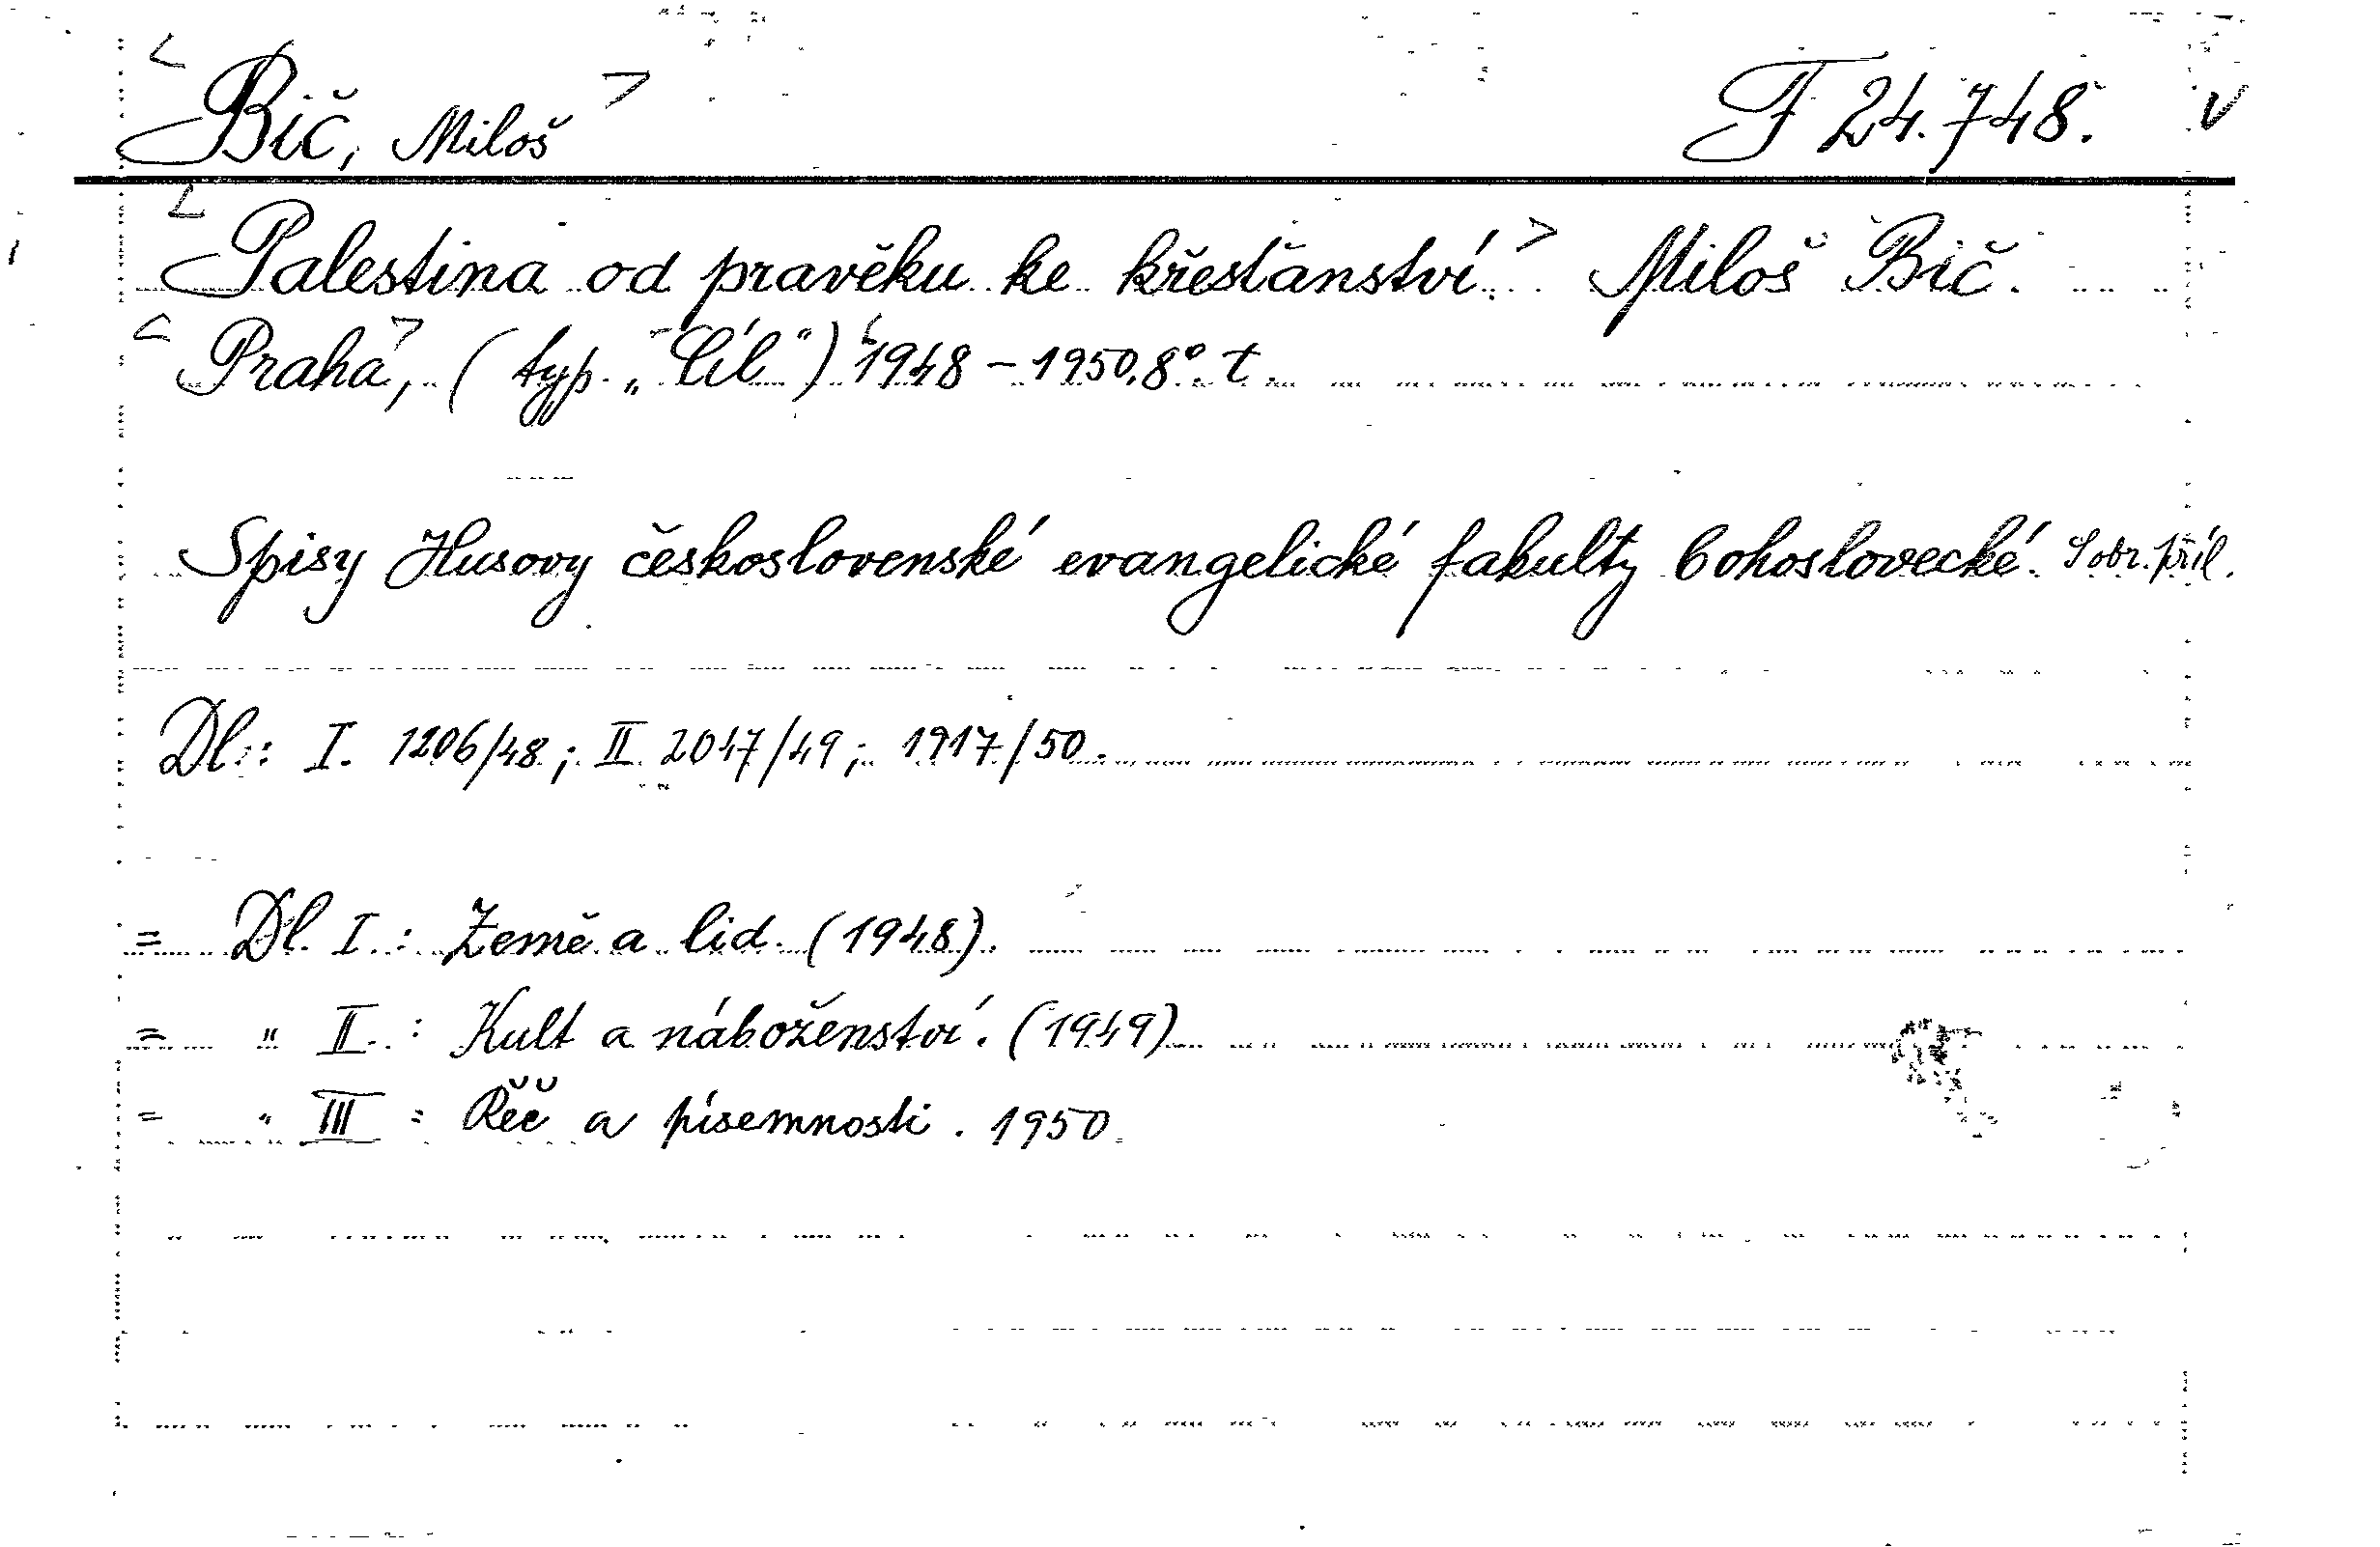 < Bič, Miloš > F 24.748. v
< Palestina od pravěku ke křesťanství. > Miloš Bič.
< Praha >, (typ. „Cíl") < 1948 – 1950. 8°. t.
Spisy Husovy československé evangelické fakulty bohoslovecké. S obr. příl.
Dl.: I. 1206/48; II 2047/49; 1917/50.
= Dl. I.: Země a lid. (1948).
= " II.: Kult a náboženství. (1949)
= " III: Řeč a písemnosti. 1950.